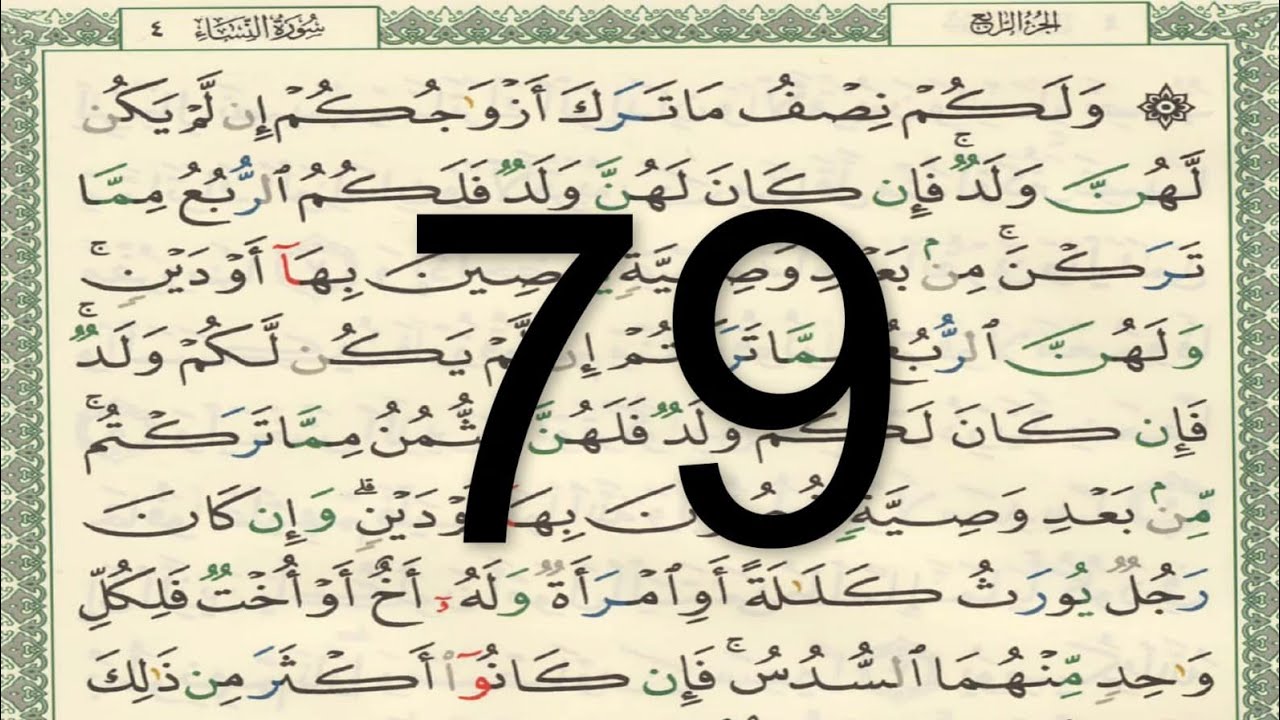 الجزء الرابع
سورة النساء ٤
وَلَكُمْ نِصْفُ مَا تَرَكَ أَزْوَٰجُكُمْ إِن لَّمْ يَكُن
لَّهُنَّ وَلَدٌ ۚ فَإِن كَانَ لَهُنَّ وَلَدٌ فَلَكُمُ ٱلرُّبُعُ مِمَّا
تَرَكْنَ ۚ مِنۢ بَعْدِ وَصِيَّةٍ يُوصِينَ بِهَآ أَوْ دَيْنٍ ۚ
وَلَهُنَّ ٱلرُّبُعُ مِمَّا تَرَكْتُمْ إِن لَّمْ يَكُن لَّكُمْ وَلَدٌ ۚ
فَإِن كَانَ لَكُمْ وَلَدٌ فَلَهُنَّ ٱلثُّمُنُ مِمَّا تَرَكْتُم ۚ
مِّنۢ بَعْدِ وَصِيَّةٍ تُوصُونَ بِهَآ أَوْ دَيْنٍ ۗ وَإِن كَانَ
رَجُلٌ يُورَثُ كَلَٰلَةً أَوِ ٱمْرَأَةٌ وَلَهُۥٓ أَخٌ أَوْ أُخْتٌ فَلِكُلِّ
وَٰحِدٍ مِّنْهُمَا ٱلسُّدُسُ ۚ فَإِن كَانُوٓا۟ أَكْثَرَ مِن ذَٰلِكَ
79